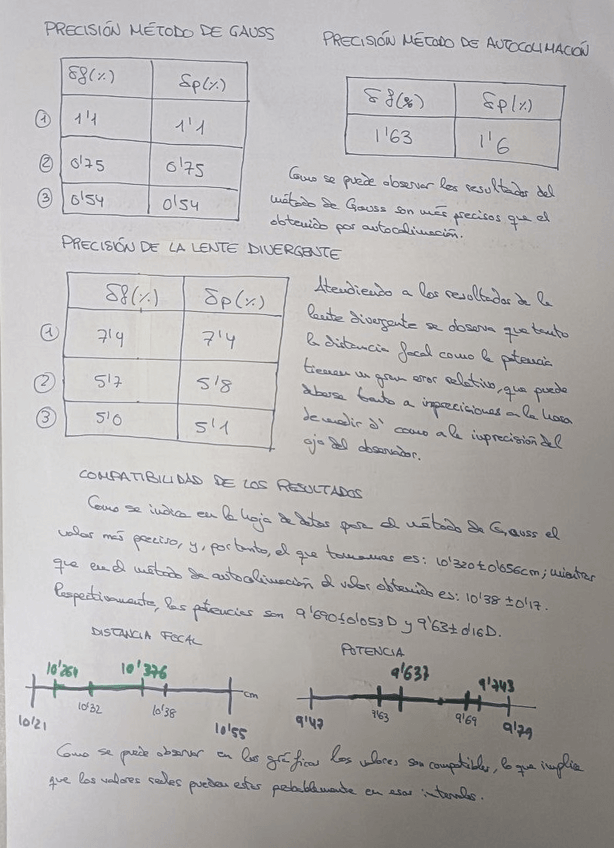 PRECISIÓN MÉTODO DE GAUSS
PRECISIÓN MÉTODO DE AUTOCOLIMACIÓN
δf(%) δp(%)
① 1'1 1'1
② 0'75 0'75
③ 0'54 0'54
δf(%) δp(%)
1'63 1'6
Como se puede observar los resultados del
método de Gauss son más precisos que el
obtenido por autocolimación.
PRECISIÓN DE LA LENTE DIVERGENTE
δf(%) δp(%)
① 7'4 7'4
② 5'7 5'8
③ 5'0 5'1
Atendiendo a los resultados de la
lente divergente se observa que tanto
la distancia focal como la potencia
tienen un gran error relativo, que puede
deberse tanto a imprecisiones a la hora
de medir d' como a la imprecisión del
ojo del observador.
COMPATIBILIDAD DE LOS RESULTADOS
Como se indica en la hoja de datos para el método de Gauss el
valor más preciso, y, por tanto, el que tomamos es: 10'320±0'056cm; mientras
que en el método de autocolimación el valor obtenido es: 10'38 ±0'17.
Respectivamente, las potencias son 9'690±0'053D y 9'63±0'16D.
DISTANCIA FOCAL
10'264 10'376
cm
10'21 10'32 10'38 10'55
POTENCIA
9'637 9'743
9'47 9'63 9'69 9'79
Como se puede observar en las gráficas los valores son compatibles, lo que implica
que los valores reales pueden estar probablemente en esos intervalos.